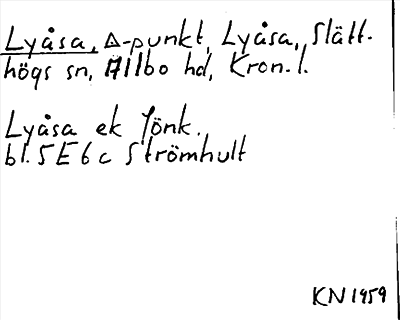 Lyåsa, Δ-punkt, Lyåsa, Slätt-
högs sn, Allbo hd, Kron. l.
Lyåsa ek Jönk.
bl. 5E6c Strömhult
KN 1959